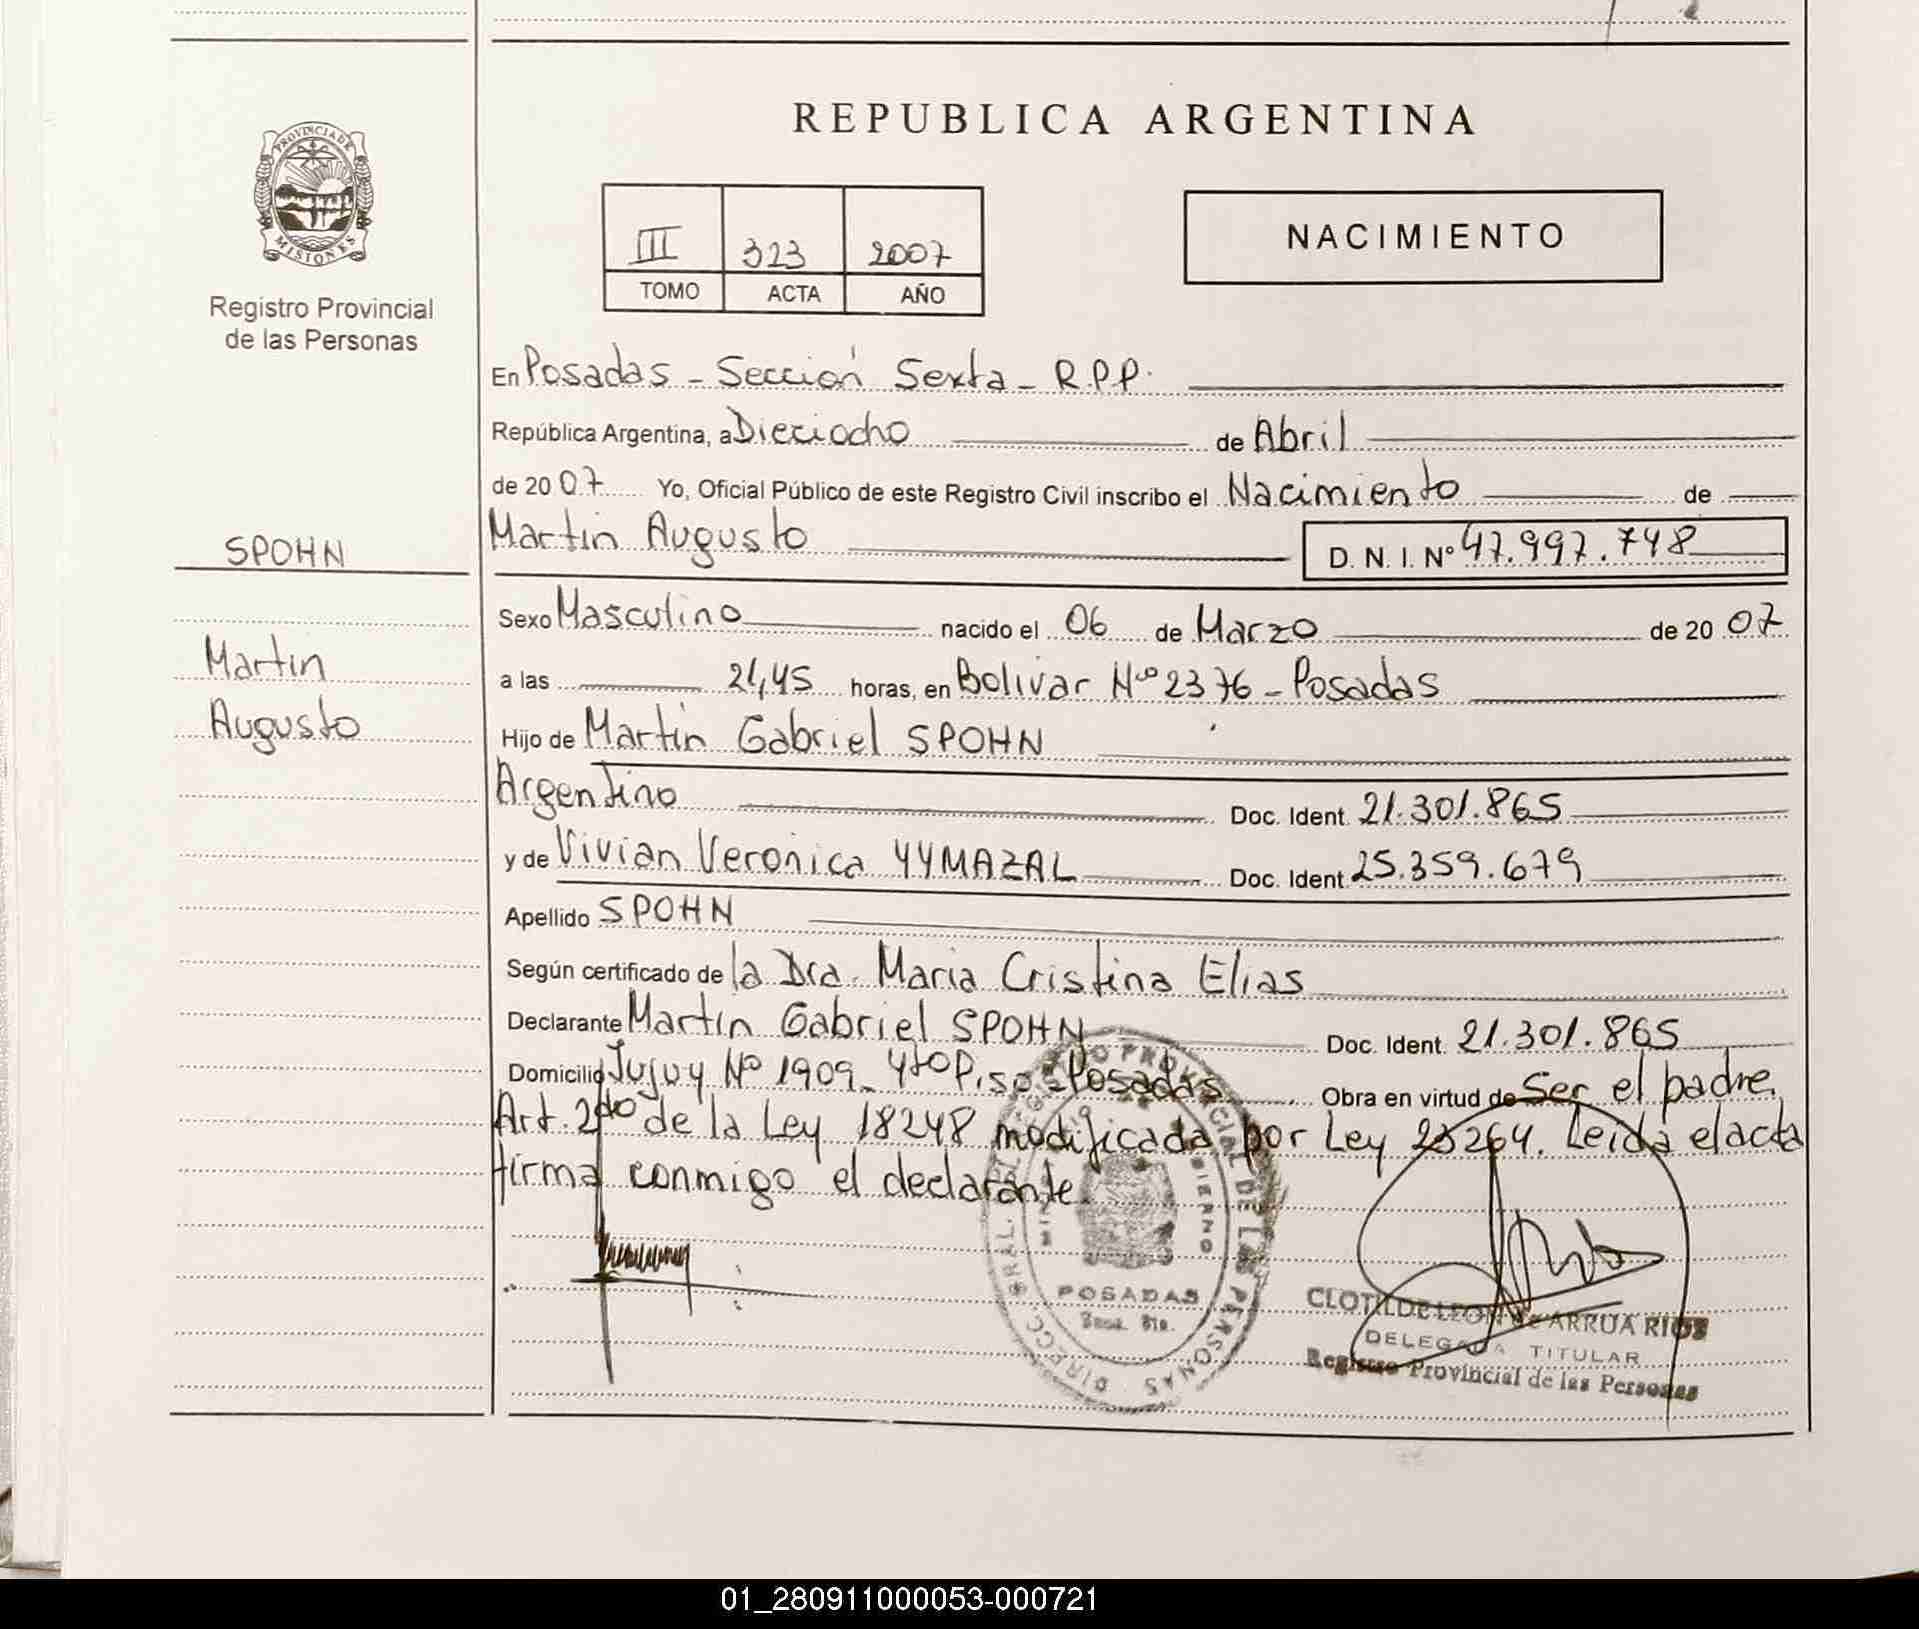 REPUBLICA ARGENTINA
PROVINCIA DE
MISIONES
Registro Provincial
de las Personas
III 323 2007
TOMO ACTA AÑO
NACIMIENTO
En Posadas - Sección Sexta - R.P.P.
República Argentina, a Dieciocho de Abril
de 20 07 Yo, Oficial Público de este Registro Civil inscribo el Nacimiento de
Martin Augusto D. N. I. Nº 47.997.748
SPOHN
Martin
Augusto
Sexo Masculino nacido el 06 de Marzo de 20 07
a las 21,45 horas, en Bolivar Nº 2376 - Posadas
Hijo de Martin Gabriel SPOHN
Argentino Doc. Ident. 21.301.865
y de Vivian Veronica YYMAZAL Doc. Ident. 25.359.679
Apellido SPOHN
Según certificado de la Dra. Maria Cristina Elias
Declarante Martin Gabriel SPOHN Doc. Ident. 21.301.865
Domicilio Jujuy Nº 1909 - 4to Piso - Posadas Obra en virtud de Ser el padre.
Art. 2do de la Ley 18248 modificada por Ley 23264. Leida el acta
firma conmigo el declarante.
DIRECC. GRAL. REGISTRO PROVINCIAL DE LAS PERSONAS
POSADAS
CLOTILDE LEON de ARRUA RIOS
DELEGADA TITULAR
Registro Provincial de las Personas
01_280911000053-000721